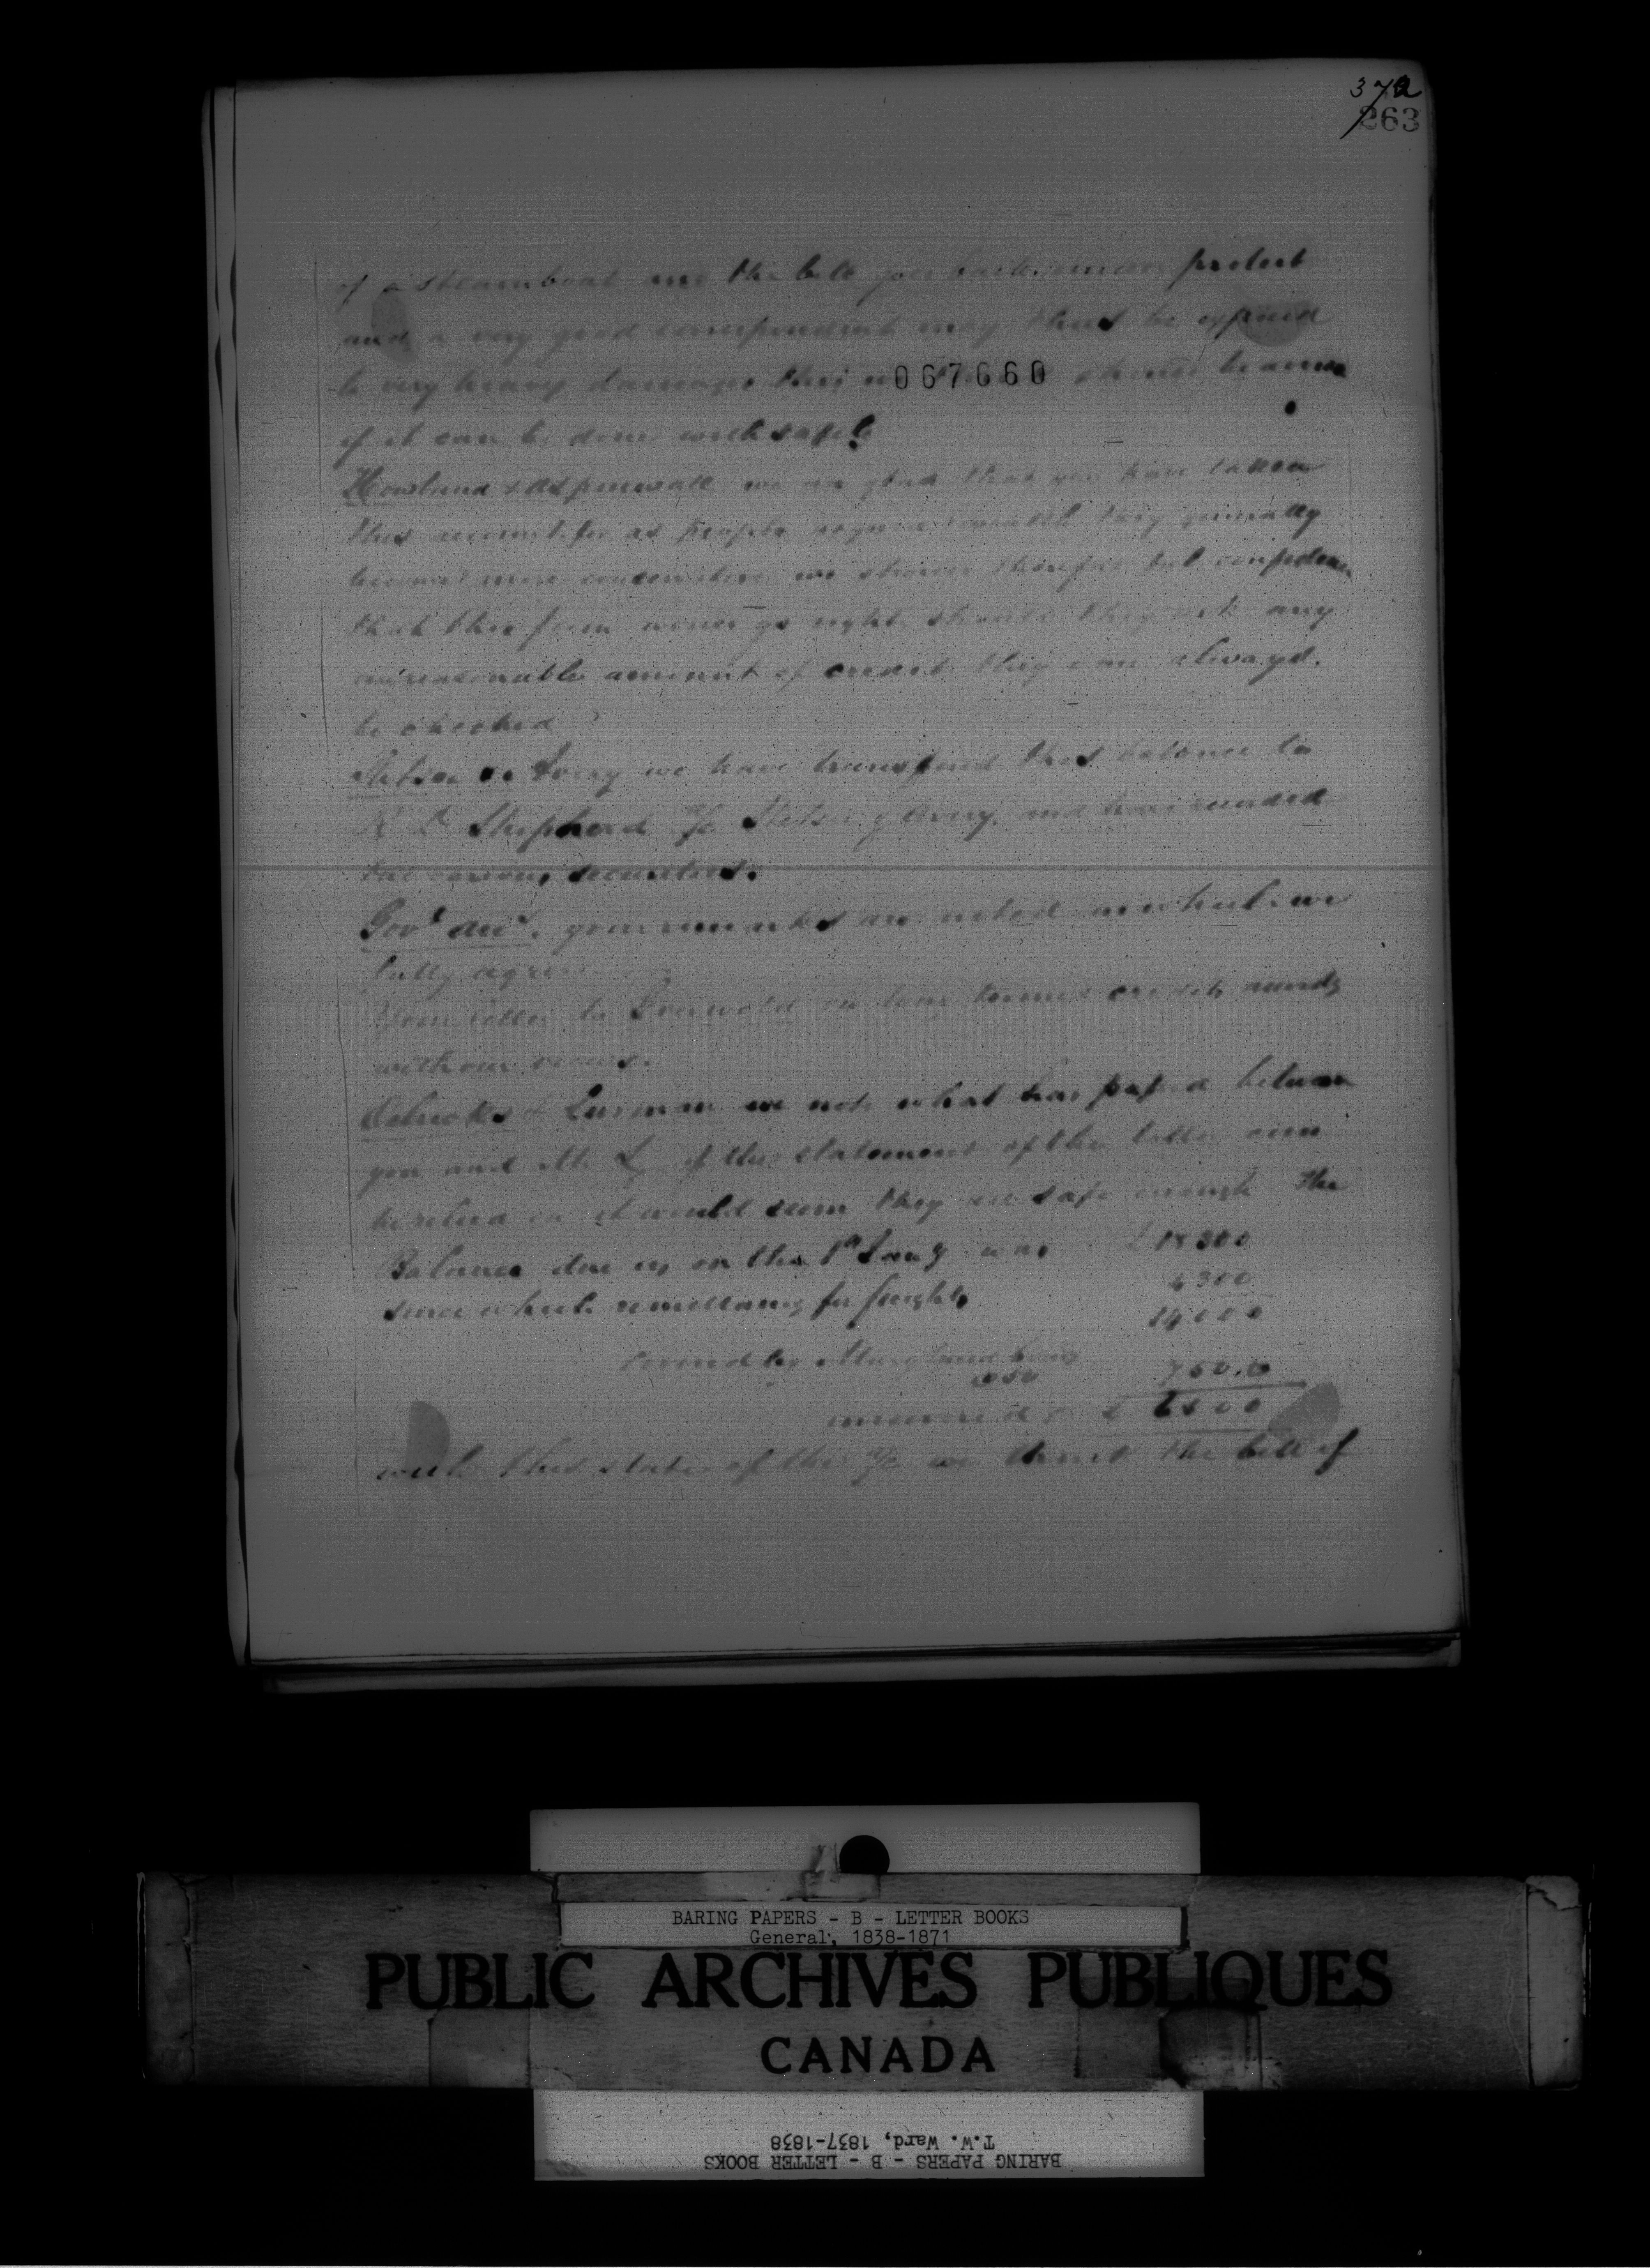 372
263
of a steamboat and the bill goes back under protest
and a very good correspondent may thus be exposed
to very heavy damages this 067660 should be
if it can be done with safety
Howland & Aspinwall we are glad that you have taken
this account for as people acquire wealth they generally
become more conservative we should therefore feel confidence
that this firm would go right should they ask any
unreasonable amount of credit they can always
be checked
Stetson & Avery we have transferred this balance to
R D Shepherd a/c Stetson & Avery, and have recorded
the various securities.
your remarks are noted in which we
fully agree
Your letter to Griswold on long termed credits accords
with our views.
Oelrichs & Lurman we note what has passed between
you and Mr L if the statement of the latter can
be relied on it would seem they are safe enough The
Balance due us on the 1st was £ 18300
since which remittances for freights 4300
14000
covered by Maryland bonds
750.0
£ 6500
with this state of the a/c we the bill of
BARING PAPERS - B - LETTER BOOKS
General, 1838-1871
PUBLIC ARCHIVES PUBLIQUES
CANADA
BARING PAPERS - B - LETTER BOOKS
T.W. Ward, 1837-1838